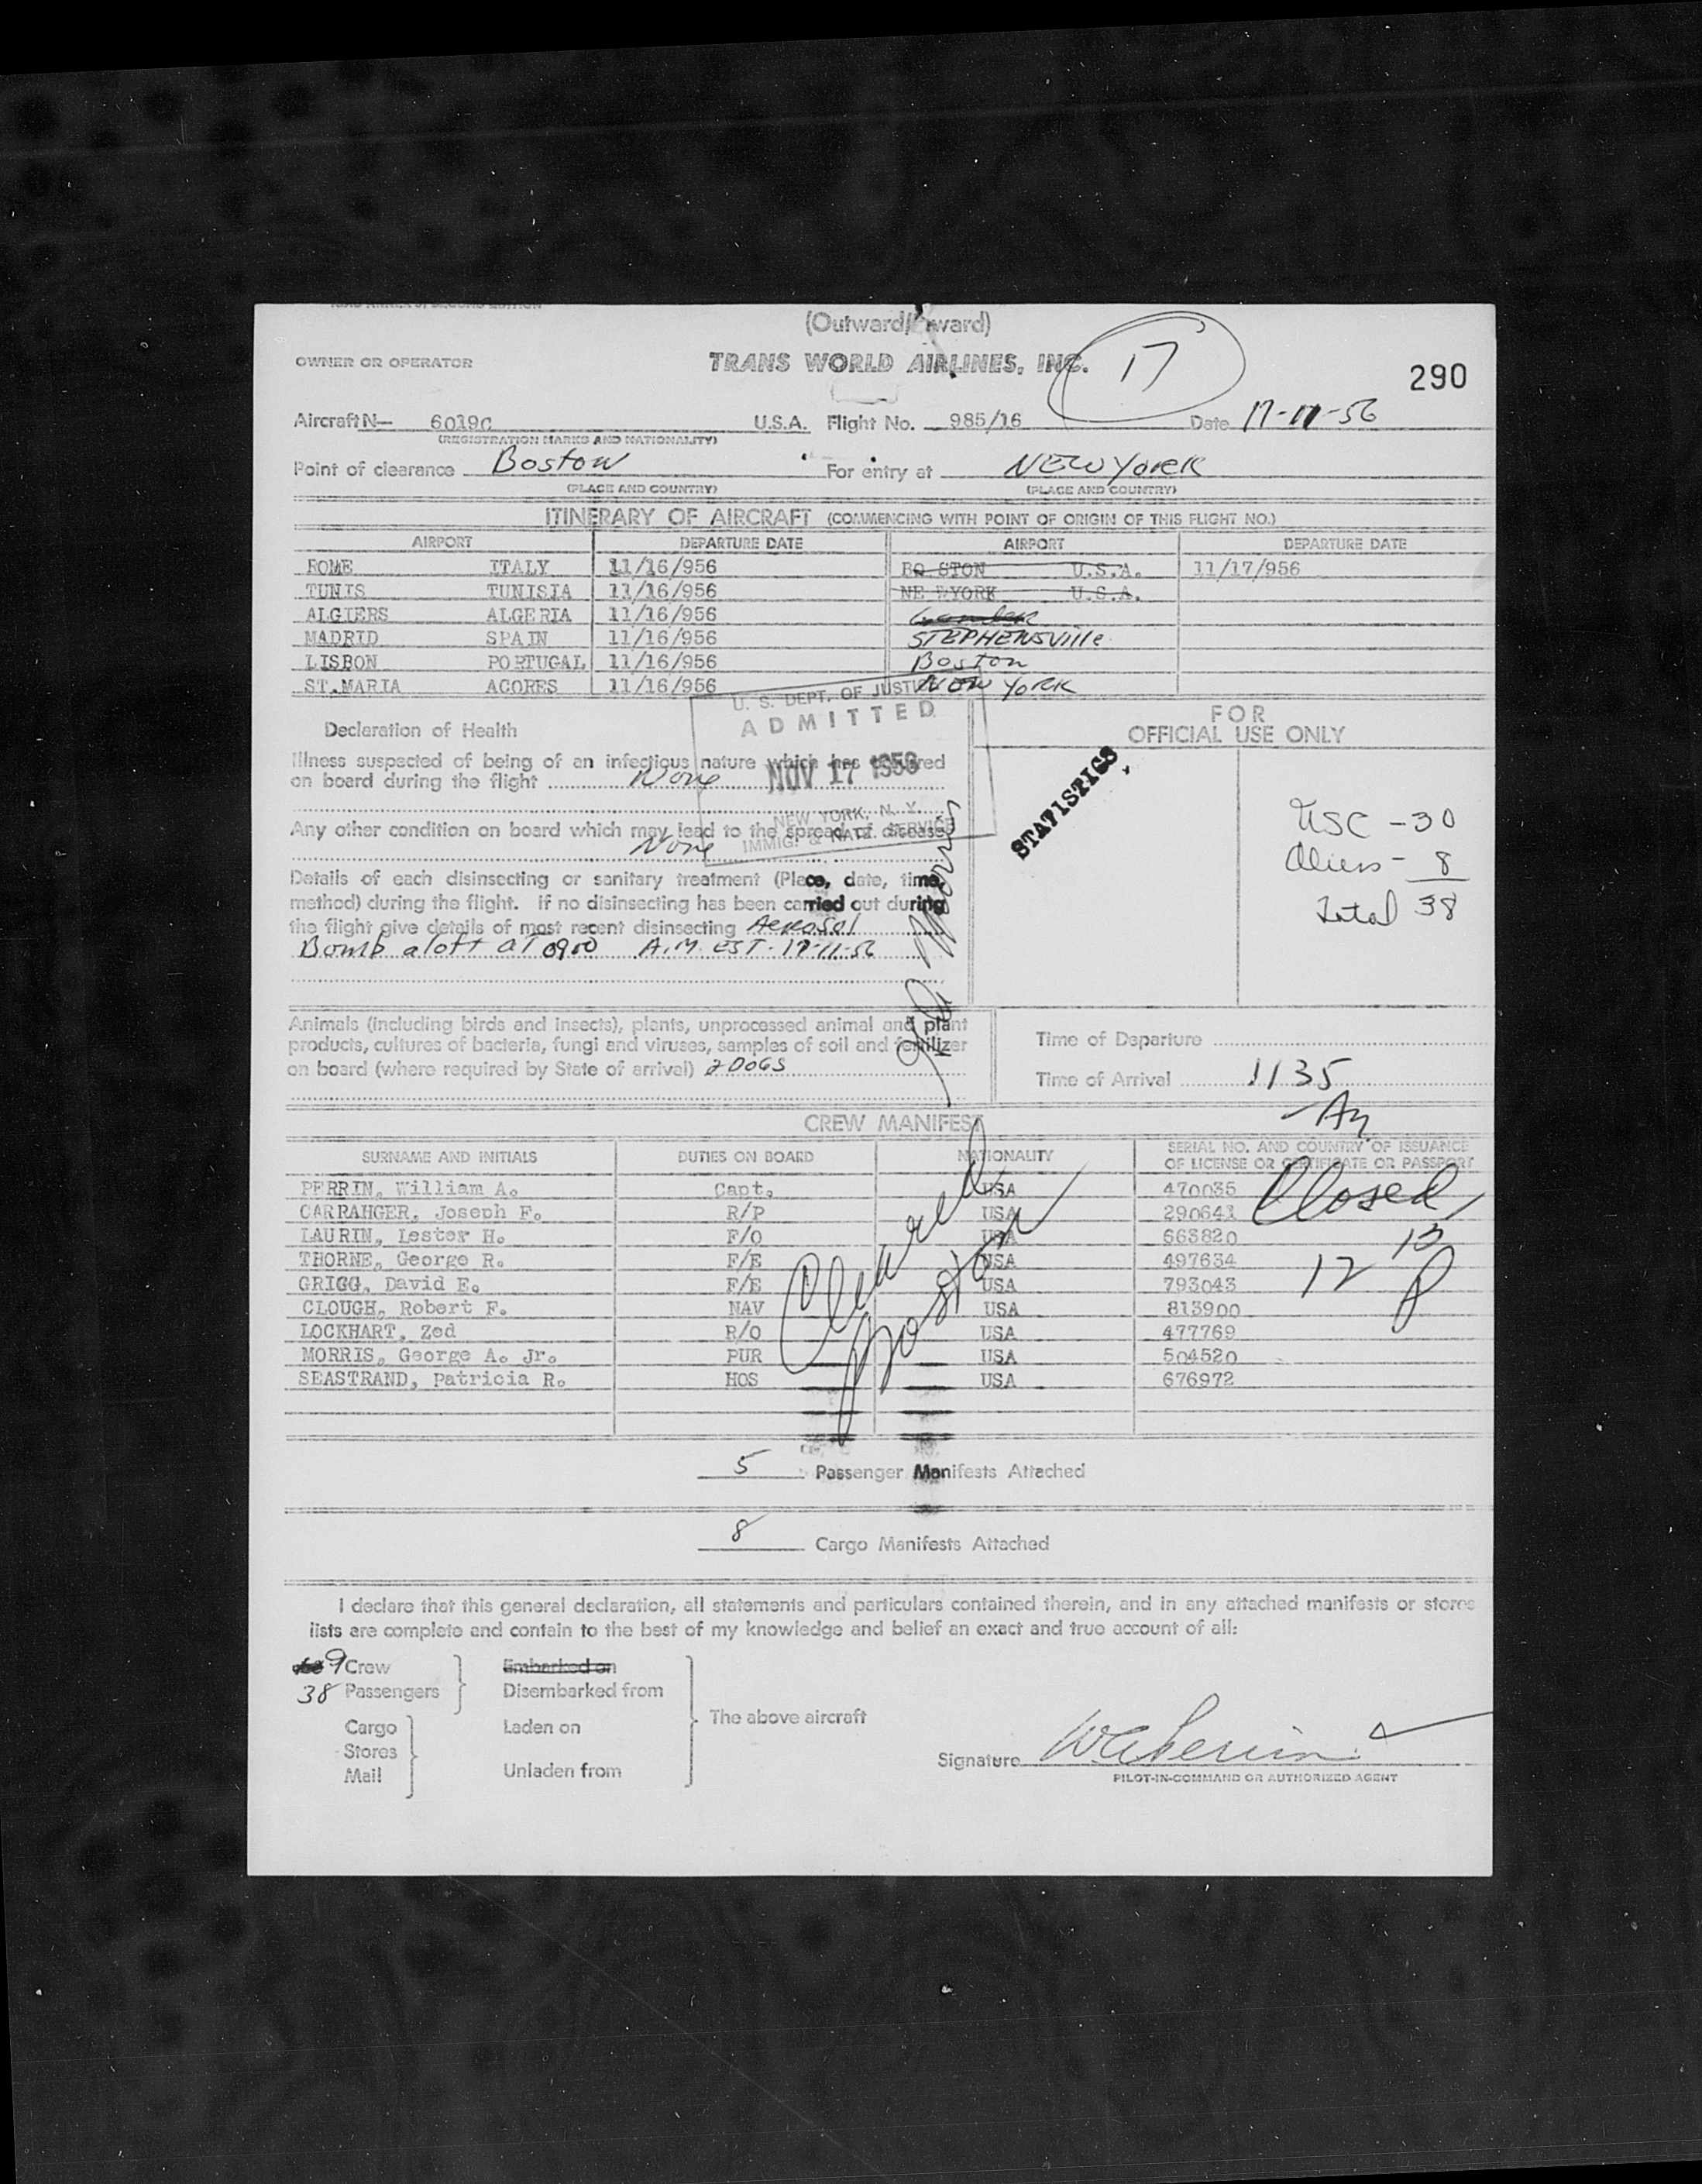 (Outward/Inward)
OWNER OR OPERATOR TRANS WORLD AIRLINES, INC. 17
290
Aircraft N— 6019C U.S.A. Flight No. 985/16 Date 17-11-56
(REGISTRATION MARKS AND NATIONALITY)
Point of clearance Boston For entry at NEW YORK
(PLACE AND COUNTRY) (PLACE AND COUNTRY)
ITINERARY OF AIRCRAFT (COMMENCING WITH POINT OF ORIGIN OF THIS FLIGHT NO.)
AIRPORT DEPARTURE DATE AIRPORT DEPARTURE DATE
ROME ITALY 11/16/956 BO STON U.S.A. 11/17/956
TUNIS TUNISIA 11/16/956 NE WYORK U.S.A.
ALGIERS ALGERIA 11/16/956 Gander
MADRID SPAIN 11/16/956 STEPHENSVIlle
LISBON PORTUGAL 11/16/956 Boston
ST.MARIA ACORES 11/16/956 NEW YORK
U. S. DEPT. OF JUSTICE
ADMITTED
NOV 17 1956
NEW YORK, N. Y.
IMMIG. & NATZ. SERVICE
Declaration of Health
Illness suspected of being of an infectious nature which has occurred
on board during the flight None
Any other condition on board which may lead to the spread of disease
None
Details of each disinsecting or sanitary treatment (Place, date, time,
method) during the flight. If no disinsecting has been carried out during
the flight give details of most recent disinsecting Aerosol
Bomb aloft at 0900 A.M. EST-17-11-56
FOR
OFFICIAL USE ONLY
STATISTICS
USC -30
Aliens - 8
Total 38
Animals (including birds and insects), plants, unprocessed animal and plant
products, cultures of bacteria, fungi and viruses, samples of soil and fertilizer
on board (where required by State of arrival) 2 DOGS
Time of Departure
Time of Arrival 1135
CREW MANIFEST
SURNAME AND INITIALS DUTIES ON BOARD NATIONALITY SERIAL NO. AND COUNTRY OF ISSUANCE
OF LICENSE OR CERTIFICATE OR PASSPORT
PERRIN, William A. Capt. USA 470035
CARRAHGER, Joseph F. R/P USA 290641
LAURIN, Lester H. F/O USA 663820
THORNE, George R. F/E USA 497634
GRIGG, David E. F/E USA 793043
CLOUGH, Robert F. NAV USA 813900
LOCKHART, Zed R/O USA 477769
MORRIS, George A. Jr. PUR USA 504520
SEASTRAND, Patricia R. HOS USA 676972
Cleared
Boston
Closed
12 10 P
5 Passenger Manifests Attached
8 Cargo Manifests Attached
I declare that this general declaration, all statements and particulars contained therein, and in any attached manifests or stores
lists are complete and contain to the best of my knowledge and belief an exact and true account of all:
9 Crew Embarked on
38 Passengers Disembarked from
The above aircraft
Cargo Laden on
Stores
Mail Unladen from
Signature
PILOT-IN-COMMAND OR AUTHORIZED AGENT